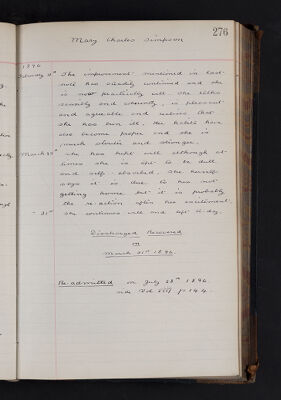 276
Mary Charles Simpson
1896
February 3rd The improvement mentioned in last
note has steadily continued and she
is now practically well. She talks
sensibly and coherently, is pleasant
and agreeable and realises that
she has been ill, her habits have
also become proper and she is
much stouter and stronger.
March 3rd She has kept well although at
times she is apt to be dull
and self absorbed, she herself
says it is due to her not
getting home but it is probably
the re-action after her excitement.
" 31st She continues well and left to-day.
Discharged Recovered
on
March 31st 1896.
Re-admitted on July 28th 1896
vide Vol p. 144.